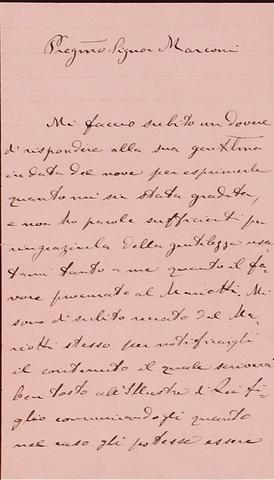 Pregmo Signor Marconi
Mi faccio subito un dovere
di rispondere alla sua gentilma
in data del nove per esprimerle
quanto mi sia stata gradita,
e non ho parole sufficienti per
ringraziarla della gentilezza usa-
tami tanto a me quanto il fa-
vore procurato al Mariotti. Mi
sono di subito recato dal Ma-
riotti stesso per notificargli
il contenuto il quale scriverà
ben tosto all'Illustre di Lei fi-
glio comunicandogli quanto
nel caso gli potesse essere